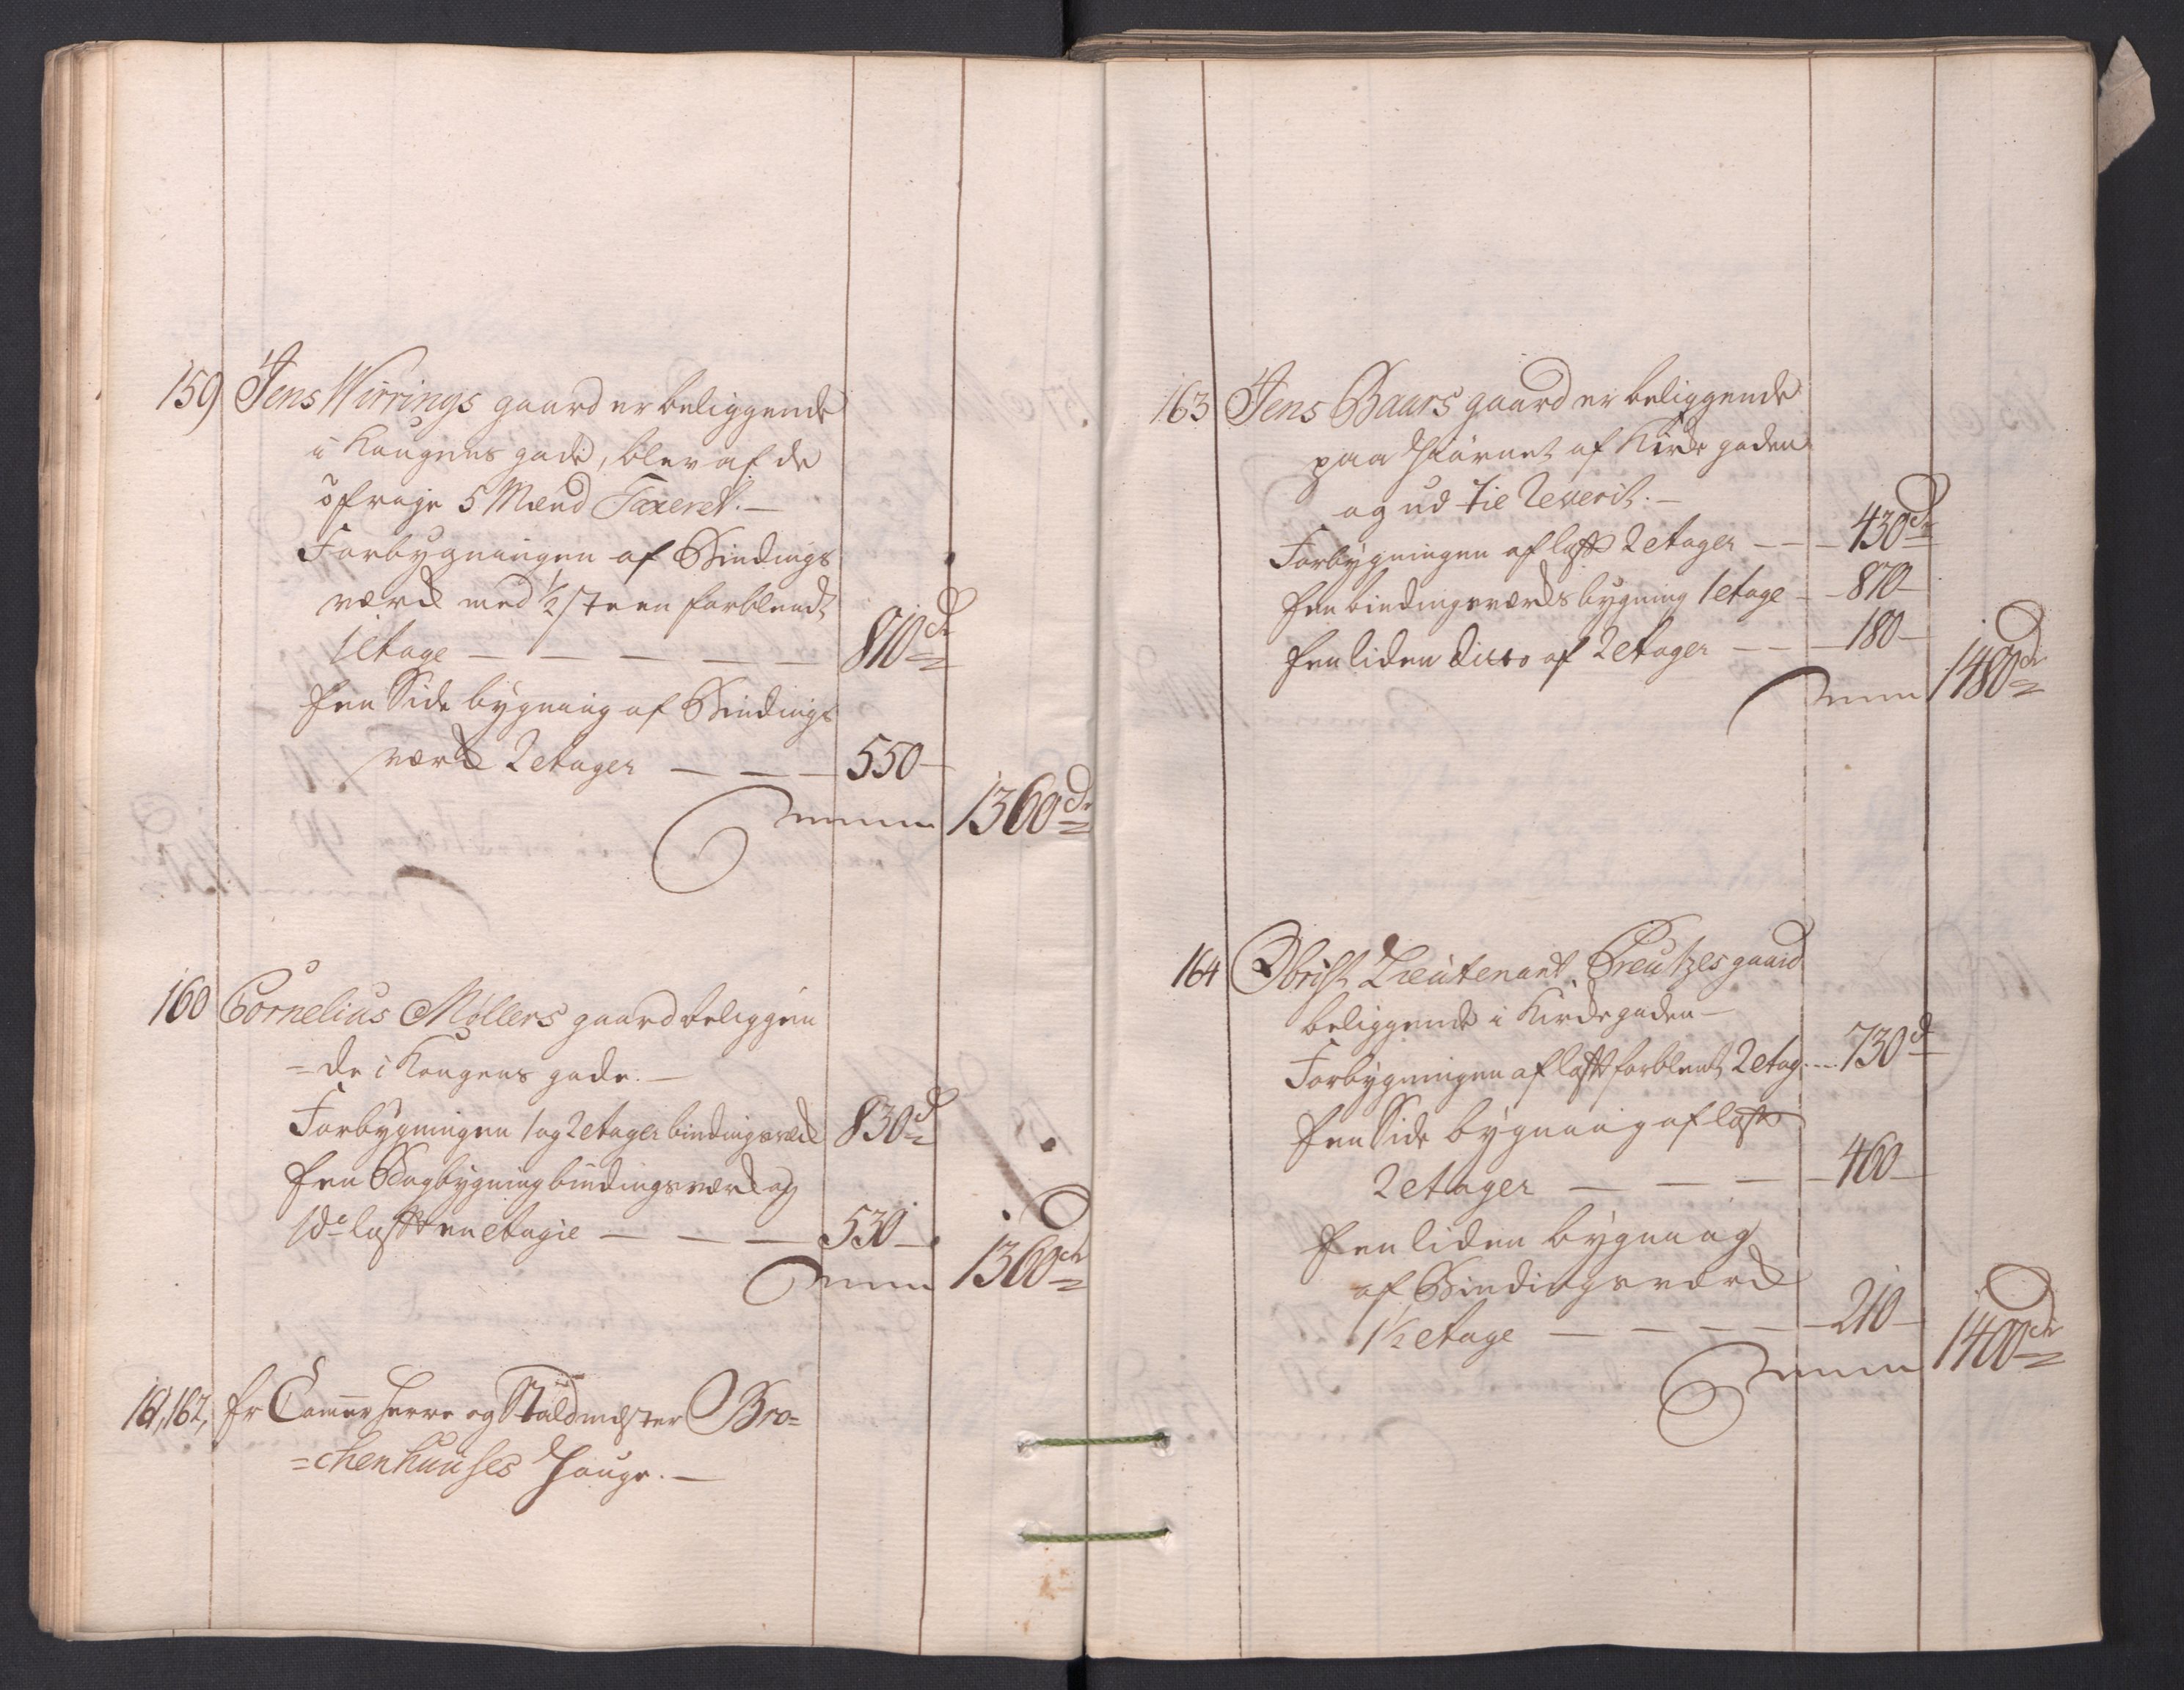 159 Jens Wirrings gaard er beliggende
i Kongens gade, blev af de
øfrige 5 Mænd Taxeret.—
Forbygningen af Bindings
værck med ½ Steen forblendt
1 etage — — — — — 810 dr
Een Side bygning af Bindings
værck 2 etager — — — 550 —
Summa 1360 dr
160 Cornelius Møllers gaard beliggen
=de i Kongens gade.—
Forbygningen 1 og 2 etager bindingsværck 830 d
Een Bagbygning bindingsværck og
1 do laft en etagie — — — 530 —
Summa 1360 dr
161, 162, Hr Cammer Herre og Staldmester Bro=
=chenhuuses Hauge.—
163 Jens Baars gaard er beliggende
paa Hiørnet af Kircke gaden
og ud til Reverit.—
Forbygningen af laft 2 etager — — — 430 dr
Een bindingsværcks bygning 1 etage — 870 —
Een liden ditto af 2 etager — — — 180 —
Summa 1480 dr
164 Obrist Lieutenant Creutzes gaard
beliggende i Kirckegaden —
Forbygningen af laft forblent 2 etag: — 730 d
Een Side bygning af laft
2 etager — — — 460 —
Een liden bygning
af Bindingsværck
1½ etage — — — — — 210 —
Summa 1400 dr